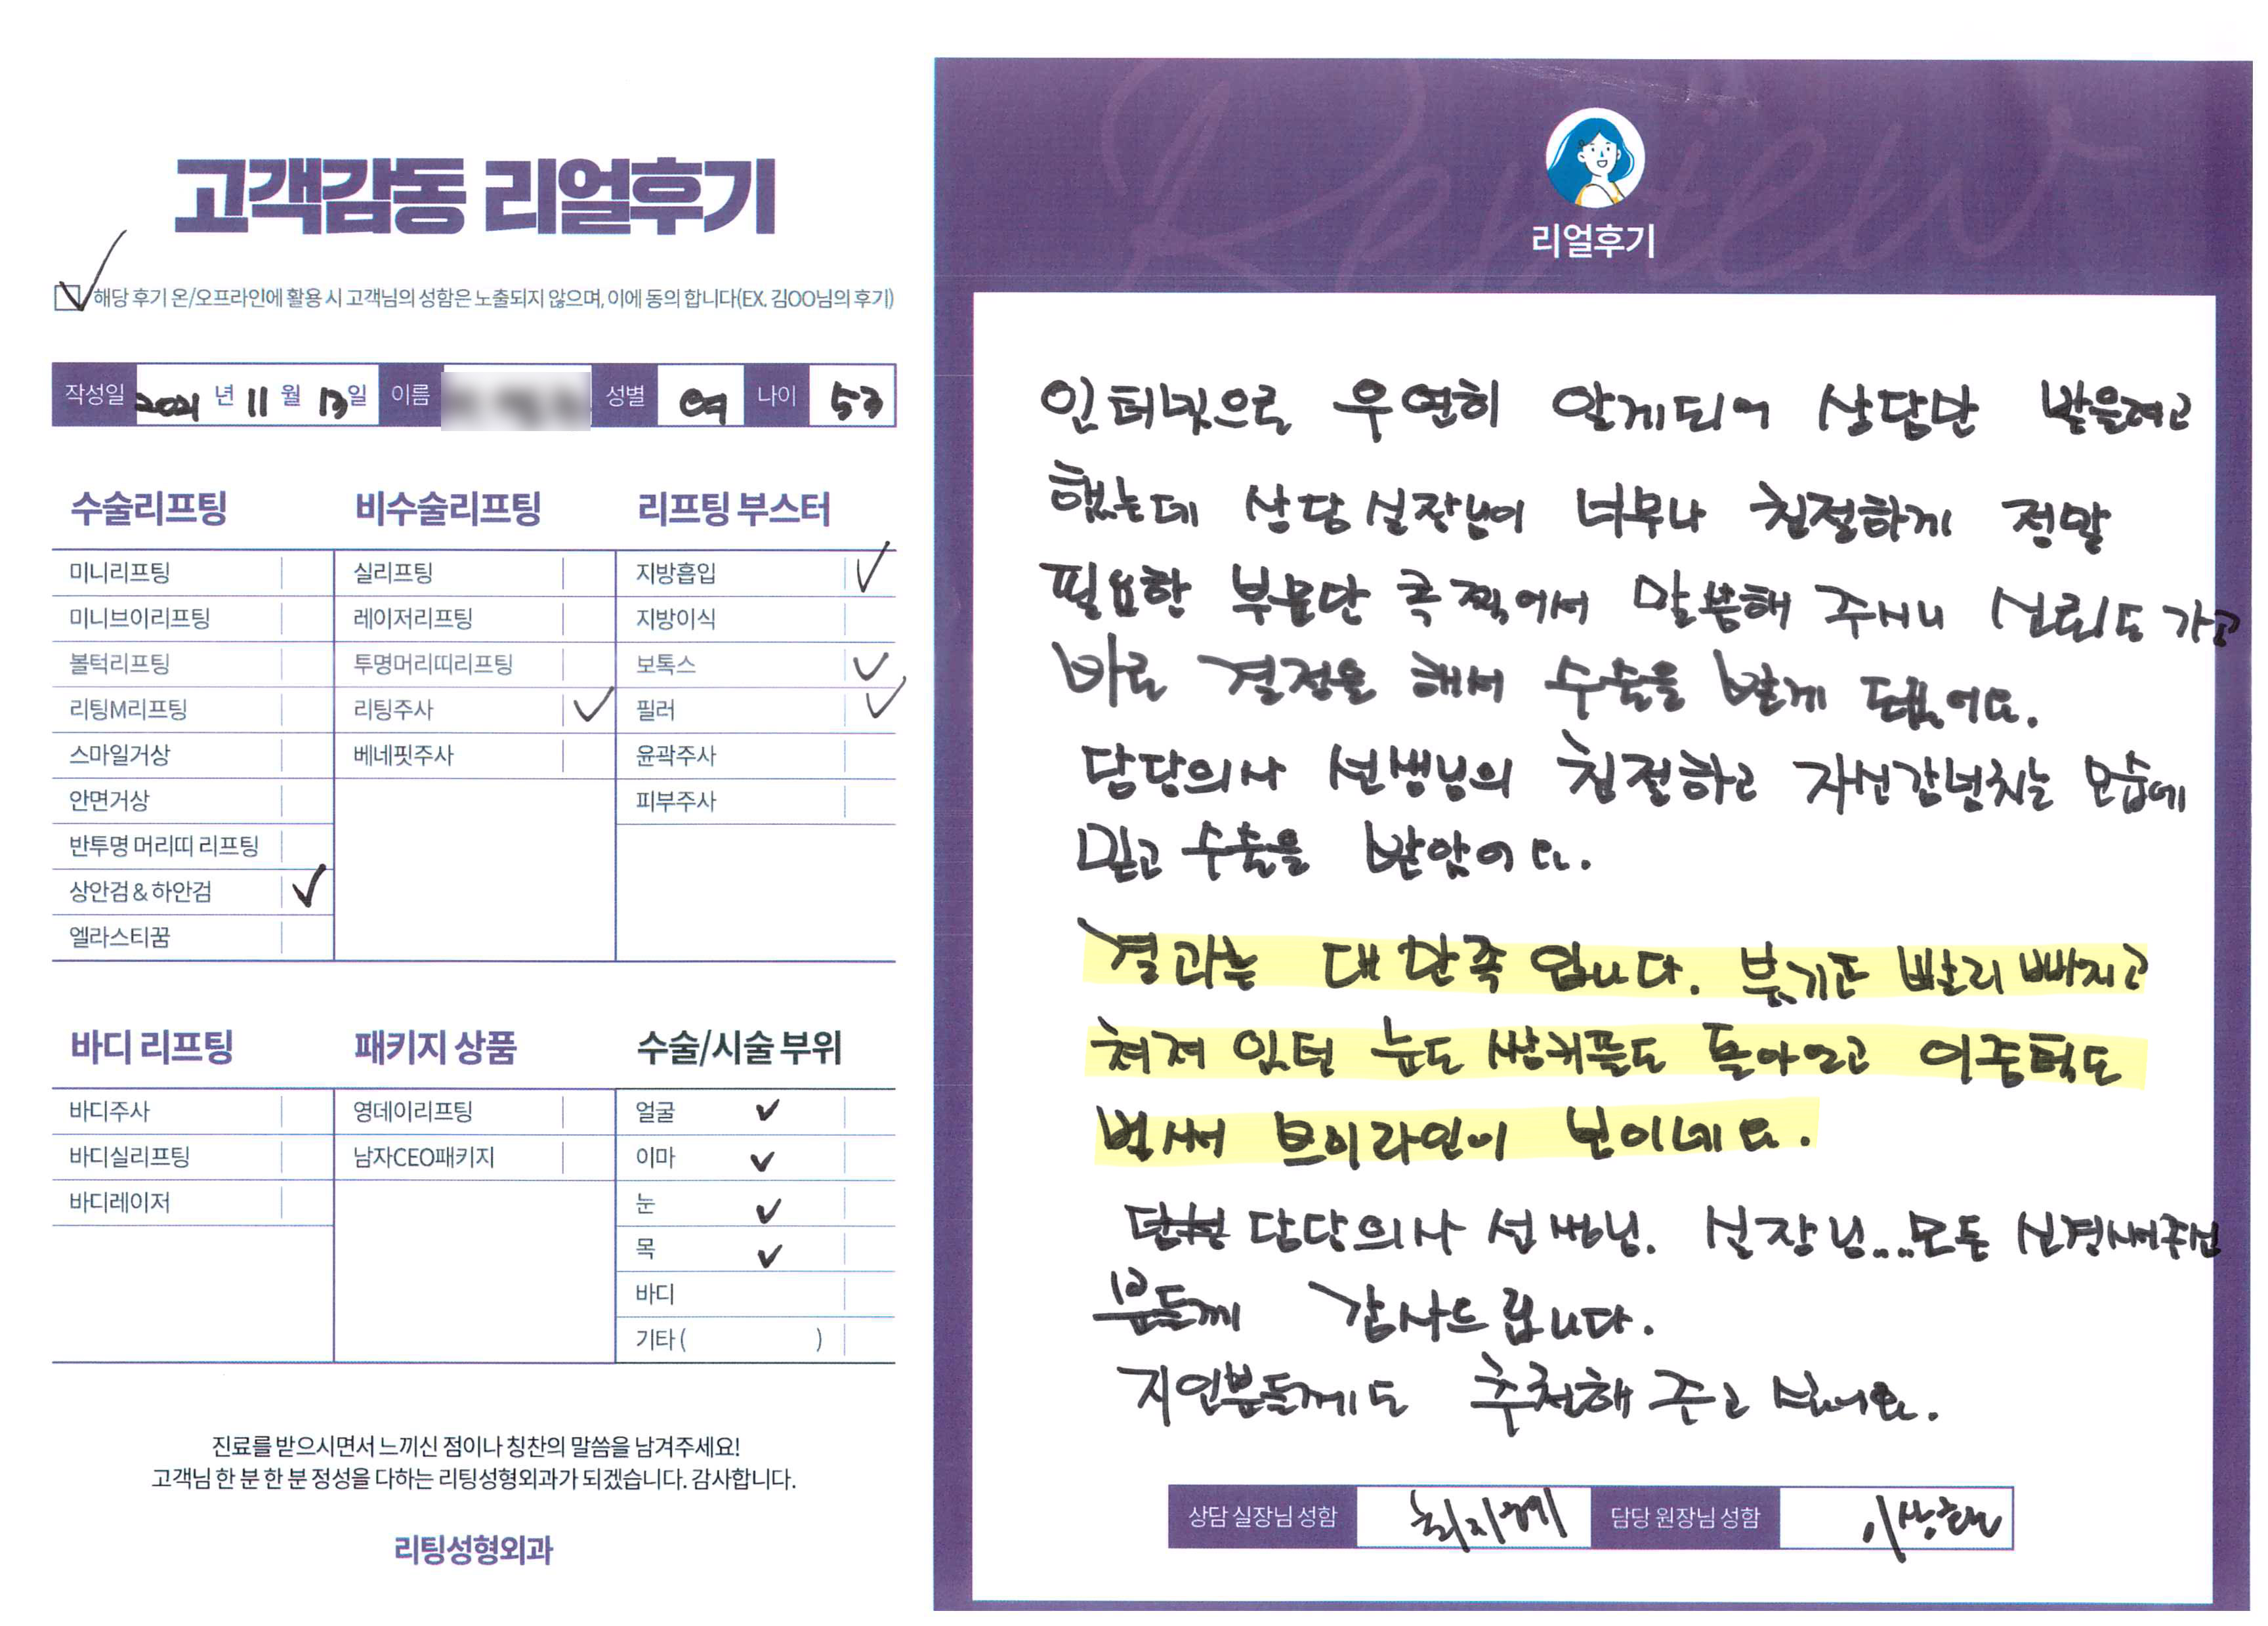 고객감동 리얼후기
해당 후기 온/오프라인에 활용 시 고객님의 성함은 노출되지 않으며, 이에 동의 합니다(EX. 김OO님의 후기)
작성일 2021 년 11 월 13 일 이름 성별 여 나이 53
수술리프팅
미니리프팅
미니브이리프팅
볼턱리프팅
리팅M리프팅
스마일거상
안면거상
반투명 머리띠 리프팅
상안검 & 하안검
엘라스티꿈
비수술리프팅
실리프팅
레이저리프팅
투명머리띠리프팅
리팅주사
베네핏주사
리프팅 부스터
지방흡입
지방이식
보톡스
필러
윤곽주사
피부주사
바디 리프팅
바디주사
바디실리프팅
바디레이저
패키지 상품
영데이리프팅
남자CEO패키지
수술/시술 부위
얼굴
이마
눈
목
바디
기타 ( )
진료를 받으시면서 느끼신 점이나 칭찬의 말씀을 남겨주세요!
고객님 한 분 한 분 정성을 다하는 리팅성형외과가 되겠습니다. 감사합니다.
리팅성형외과
Review
리얼후기
인터넷으로 우연히 알게되어 상담만 받을려고
했는데 상담실장님이 너무나 친절하게 정말
필요한 부분만 콕 찍어서 말씀해 주시니 신뢰도 가고
바로 결정을 해서 수술을 받게 됐어요.
담당의사 선생님의 친절하고 자신감넘치는 모습에
믿고 수술을 받았어요.
결과는 대만족 입니다. 붓기도 빨리 빠지고
쳐져 있던 눈도 쌍커플도 돌아오고 이중턱도
벌써 브이라인이 보이네요.
담당의사 선생님. 실장님... 모든 신경써주신
분들께 감사드립니다.
지인분들께도 추천해 주고 싶네요.
상담 실장님 성함 최지혜 담당 원장님 성함